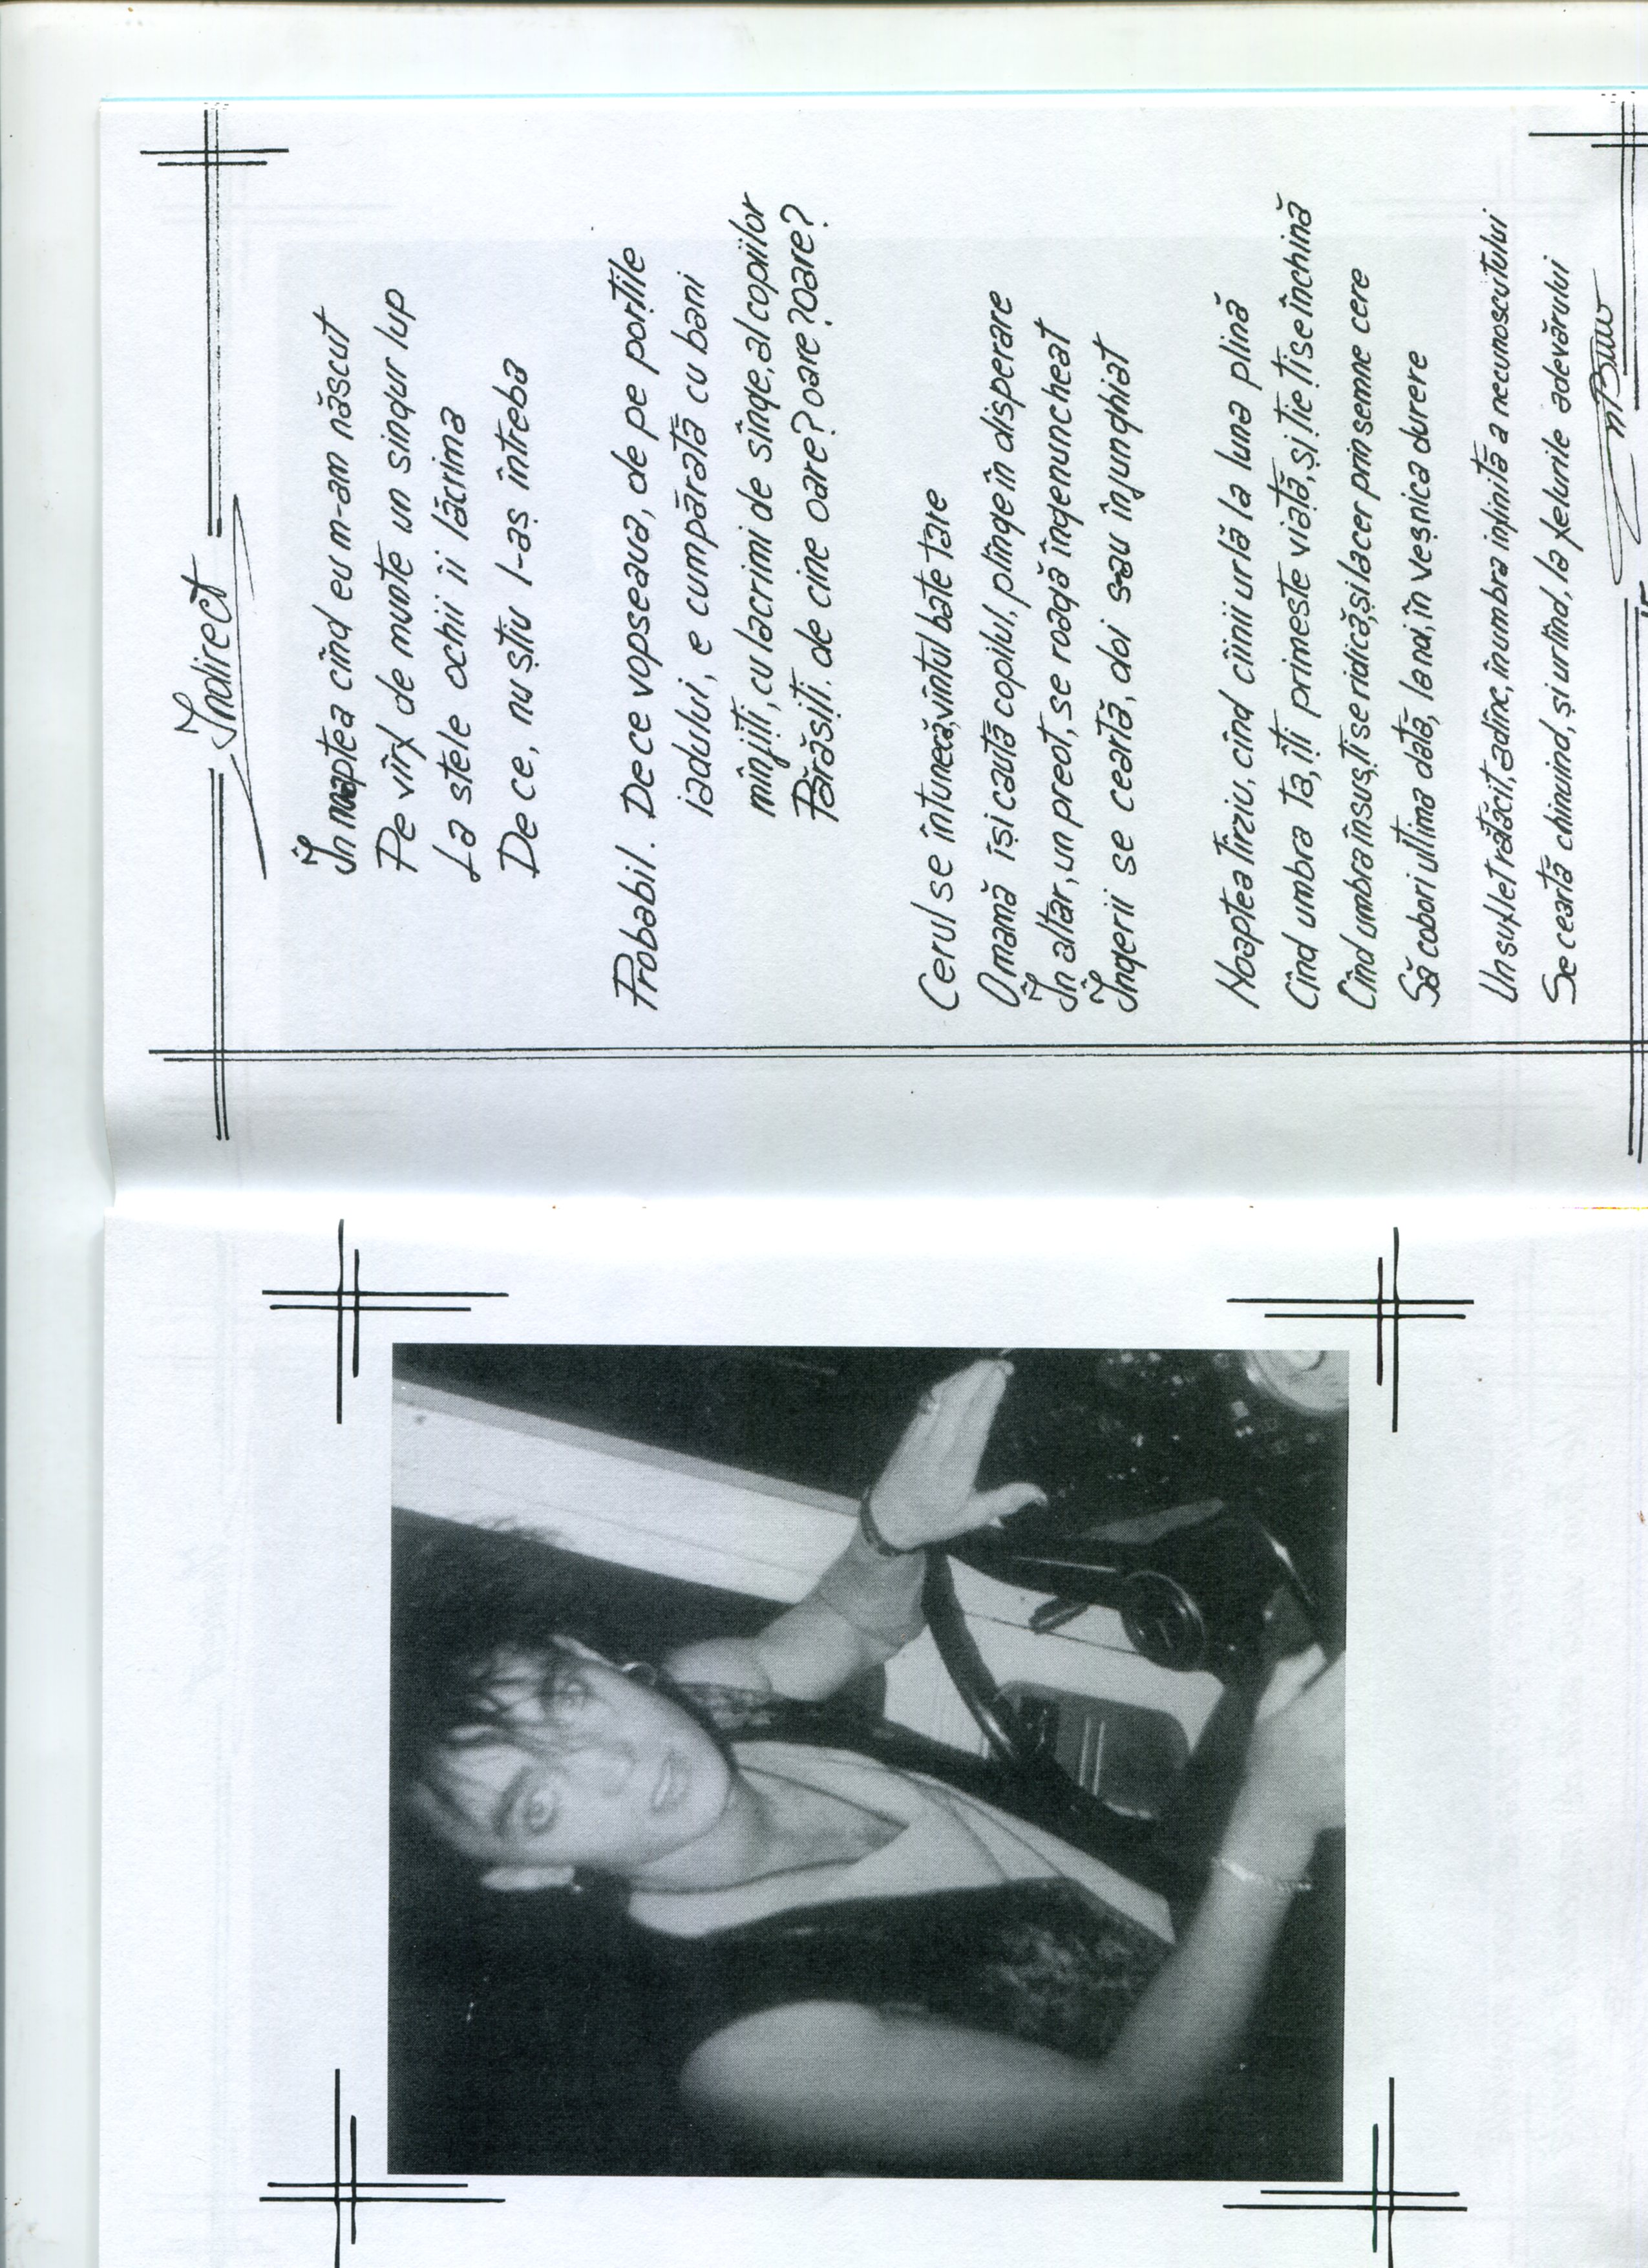 Indirect
În noaptea cînd eu m-am născut
Pe vîrf de munte un singur lup
La stele ochii îi lăcrima
De ce, nu știu l-aș întreba
Probabil. De ce vopseaua, de pe porțile
iadului, e cumpărată cu bani
mînjiți, cu lacrimi de sînge, al copiilor
Părăsiți. de cine oare? oare? oare?
Cerul se întunecă, vîntul bate tare
O mamă își caută copilul, plînge în disperare
În altar, un preot, se roagă îngenuncheat
Îngerii se ceartă, doi s-au înjunghiat
Noaptea tîrziu, cînd cîinii urlă la luna plină
Cînd umbra ta, îți primește viață, și ție ți se închină
Cînd umbra însuși ți se ridică, și la cer prin semne cere
Să cobori ultima dată, la noi, în veșnica durere
Un suflet rătăcit, adînc, în umbra infinită a necunoscutului
Se ceartă chinuind, și urlînd, la felurile adevărului